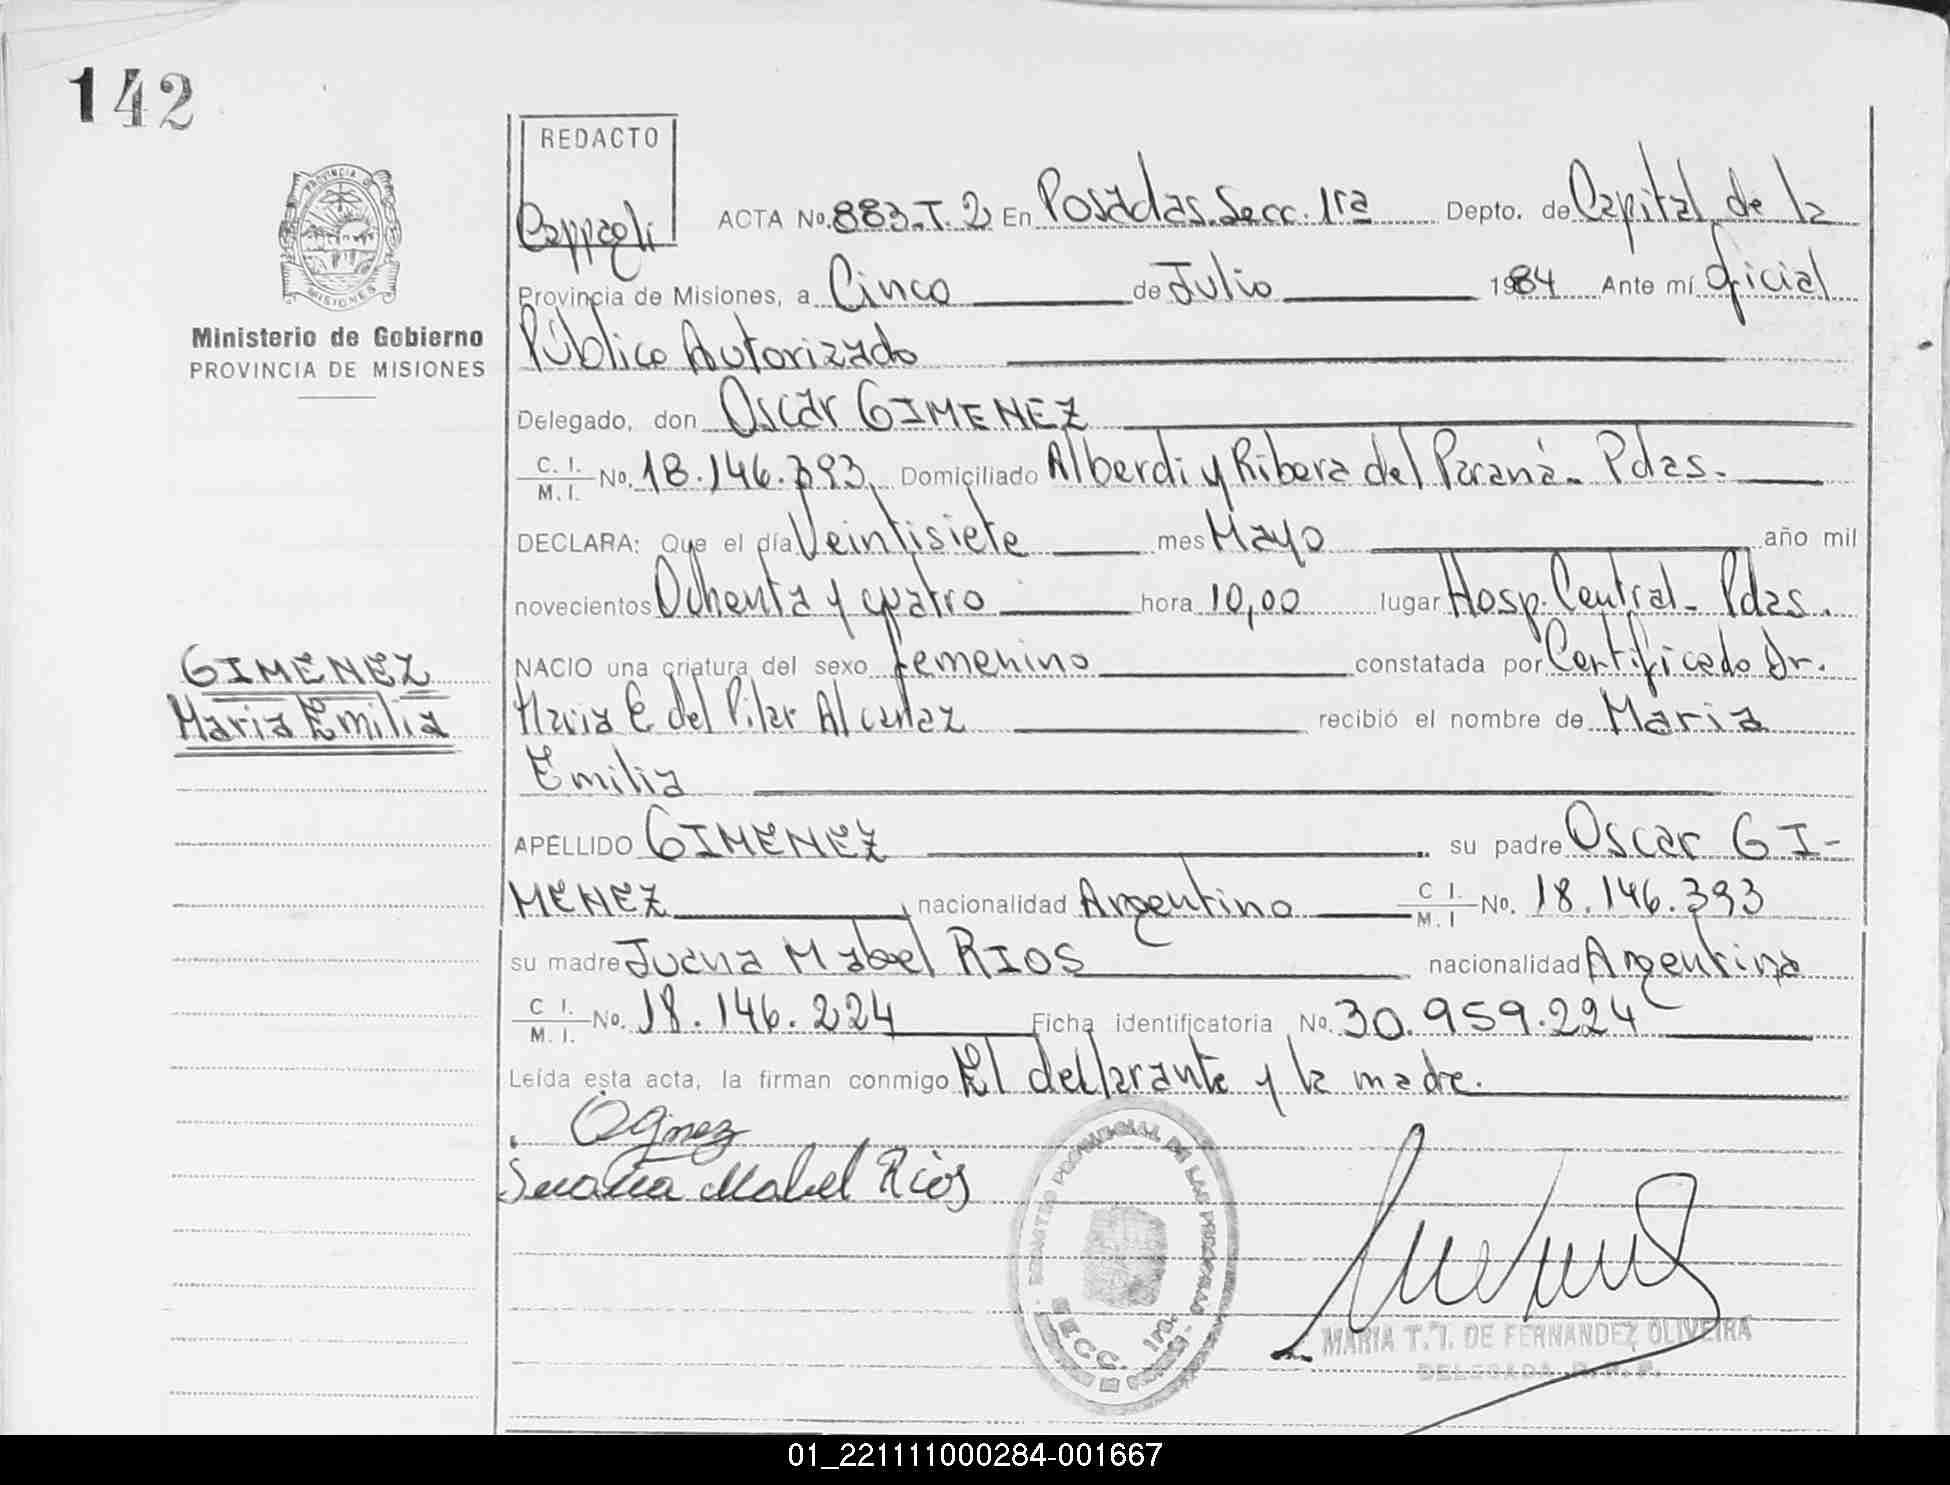 142
REDACTO
Cappagli
PROVINCIA D
MISIONES
Ministerio de Gobierno
PROVINCIA DE MISIONES
ACTA No. 883-T.2 En Posadas. Secc. 1ra Depto. de Capital de la
Provincia de Misiones, a Cinco de Julio 1984 Ante mí Oficial
Público Autorizado
Delegado, don Oscar GIMENEZ
C. I.
M. I. No. 18.146.393 Domiciliado Alberdi y Ribera del Paraná- Pdas.
DECLARA: Que el día Veintisiete mes Mayo año mil
novecientos Ochenta y cuatro hora 10,00 lugar Hosp. Central- Pdas.
NACIO una criatura del sexo femenino constatada por Certificado Dr.
Maria E del Pilar Alcaraz recibió el nombre de Maria
Emilia
GIMENEZ
Maria Emilia
APELLIDO GIMENEZ su padre Oscar GI-
MENEZ nacionalidad Argentino C I.
M. I No. 18.146.393
su madre Juana Mabel RIOS nacionalidad Argentina
C I.
M. I. No. 18.146.224 Ficha identificatoria No. 30.959.224
Leída esta acta, la firman conmigo El declarante y la madre.
Ogmez
Juana Mabel Rios
REGISTRO PROVINCIAL DE LAS PERSONAS
SECC. 1ra.
MARIA T. I. DE FERNANDEZ OLIVEIRA
DELEGADA R. P. P.
01_221111000284-001667